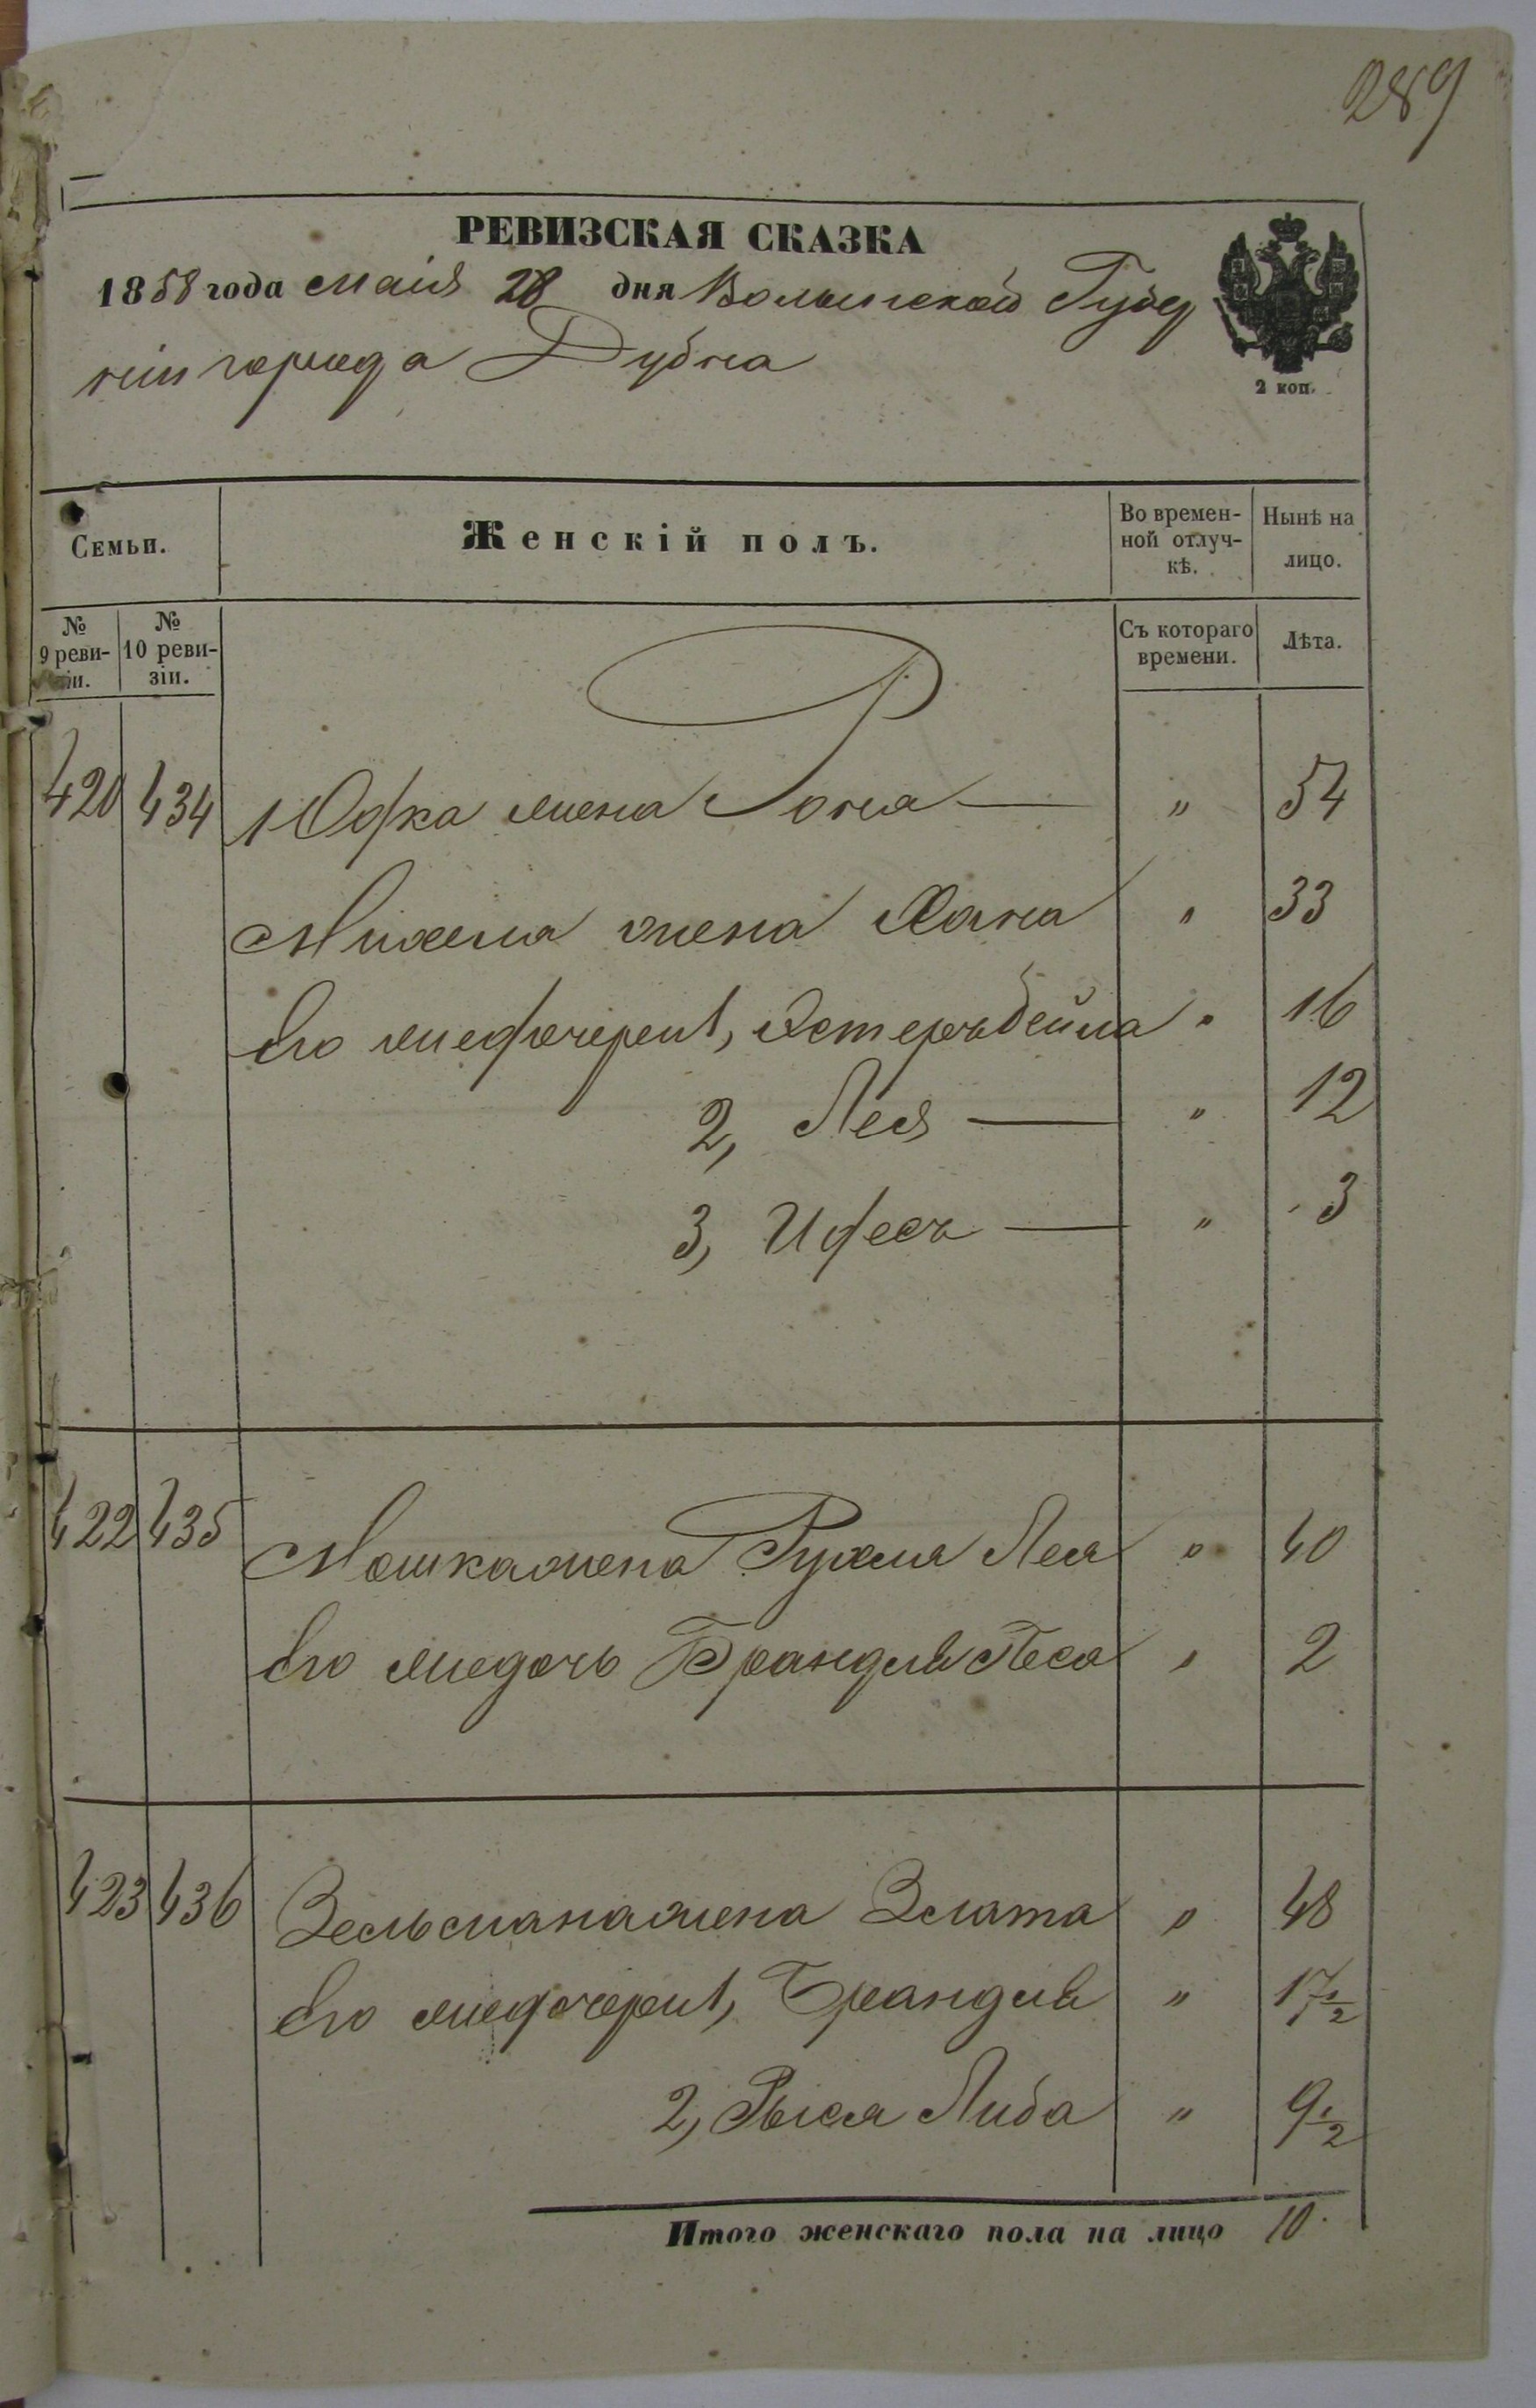 289
РЕВИЗСКАЯ СКАЗКА
1858 года маія 28 дня Волынской Губер
ніи города Дубна
2 коп.
Семьи.
Женскій полъ.
Во времен-
ной отлуч-
кѣ.
Нынѣ на
лицо.
№
9 реви-
зіи.
№
10 реви-
зіи.
Съ котораго
времени.
Лѣта.
420 434 Юдка жена Рона — " 54
Михеля жена Хана " 33
Его же дочери 1, Эстеръ Бейла " 16
2, Лея — " 12
3, Ифесъ — " 3
422 435 Мошка жена Рухля Лея " 40
Его же дочь Брандля Песя " 2
423 436 Зельмана жена Злата " 48
Его же дочери 1, Брандля " 17 1/2
2, Рыся Либа " 9 1/2
Итого женскаго пола на лицо 10.